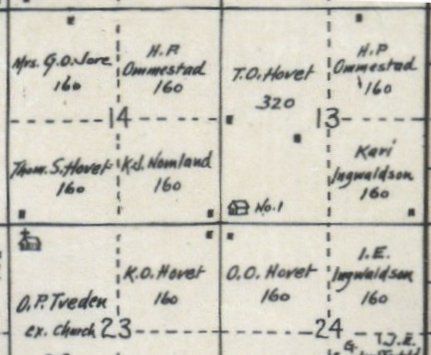 Mrs. G.O. Jore
160
H.P.
Ommestad
160
T.O. Hovet
320
H.P.
Ommestad
160
14
13
Thom. S. Hovet
160
K.S. Nomland
160
Kari
Ingwaldson
160
No. 1
O.P. Tveden
ex. Church
K.O. Hovet
160
O.O. Hovet
160
I.E.
Ingwaldson
160
23
24
G.
T.J.E.